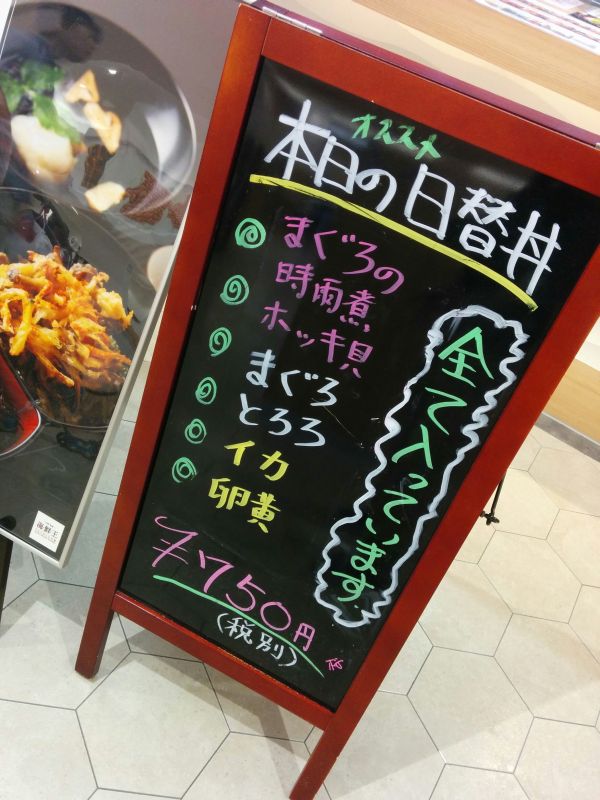 オススメ
本日の日替丼
まぐろの
時雨煮
ホッキ貝
まぐろ
とろろ
イカ
卵黄
全て入っています
¥750円
(税別)
海鮮王